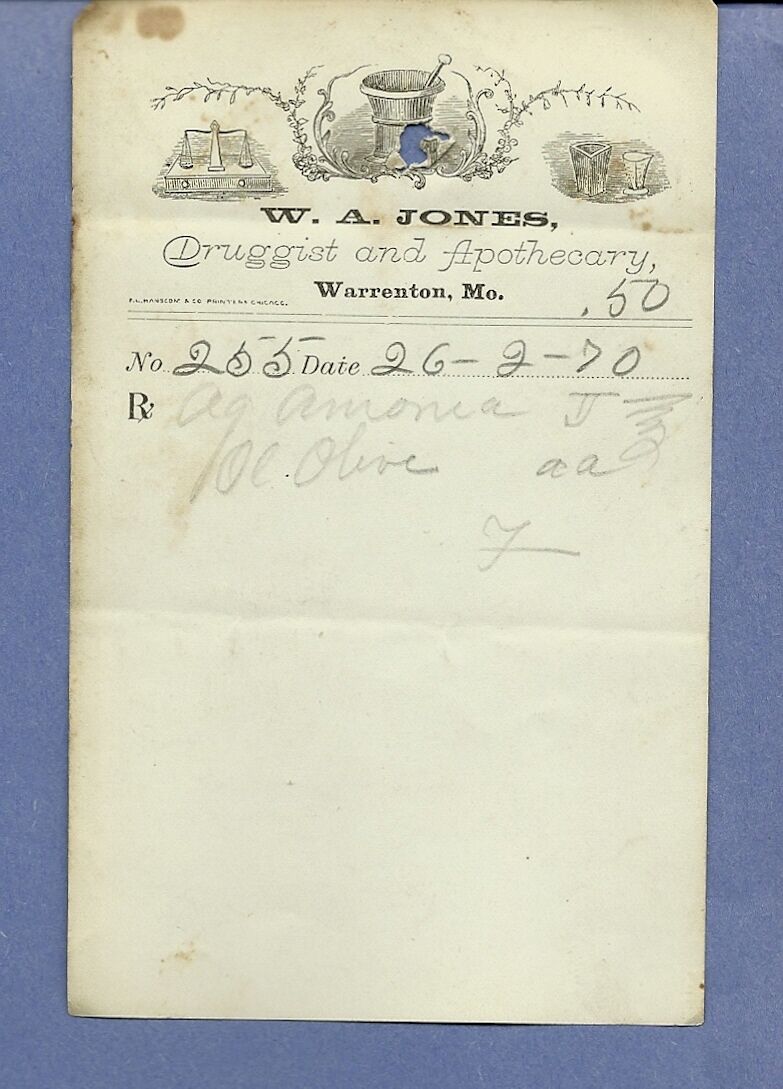 W. A. JONES,
Druggist and Apothecary,
Warrenton, Mo.
P. L. HANSCOM & CO PRINTERS CHICAGO.
.50
No 255 Date 26-2-70
℞ Aq Amonia
Ol. Olive aa